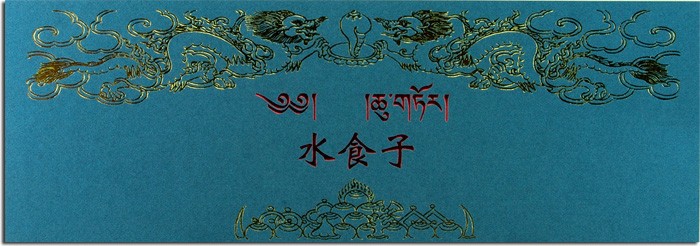 ༄༅། །ཆུ་གཏོར།
水食子